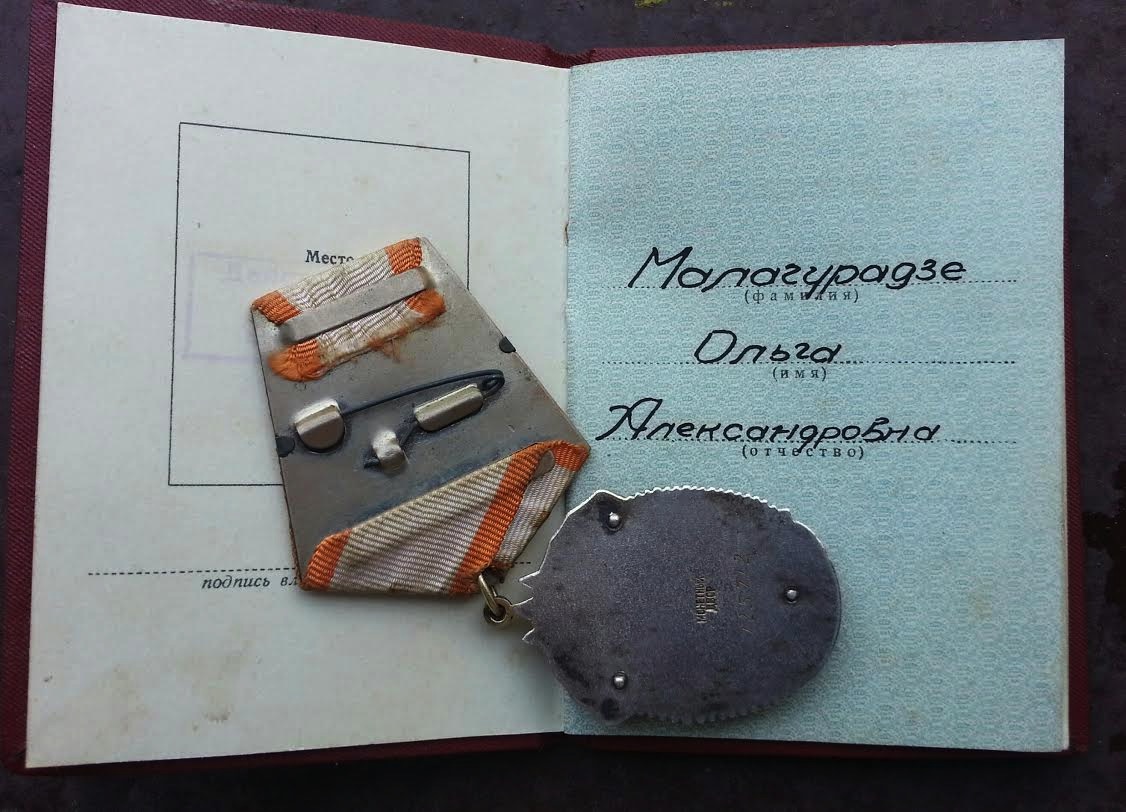 Место
подпись вл
Малагурадзе
(фамилия)
Ольга
(имя)
Александровна
(отчество)
МОНЕТНЫЙ
ДВОР